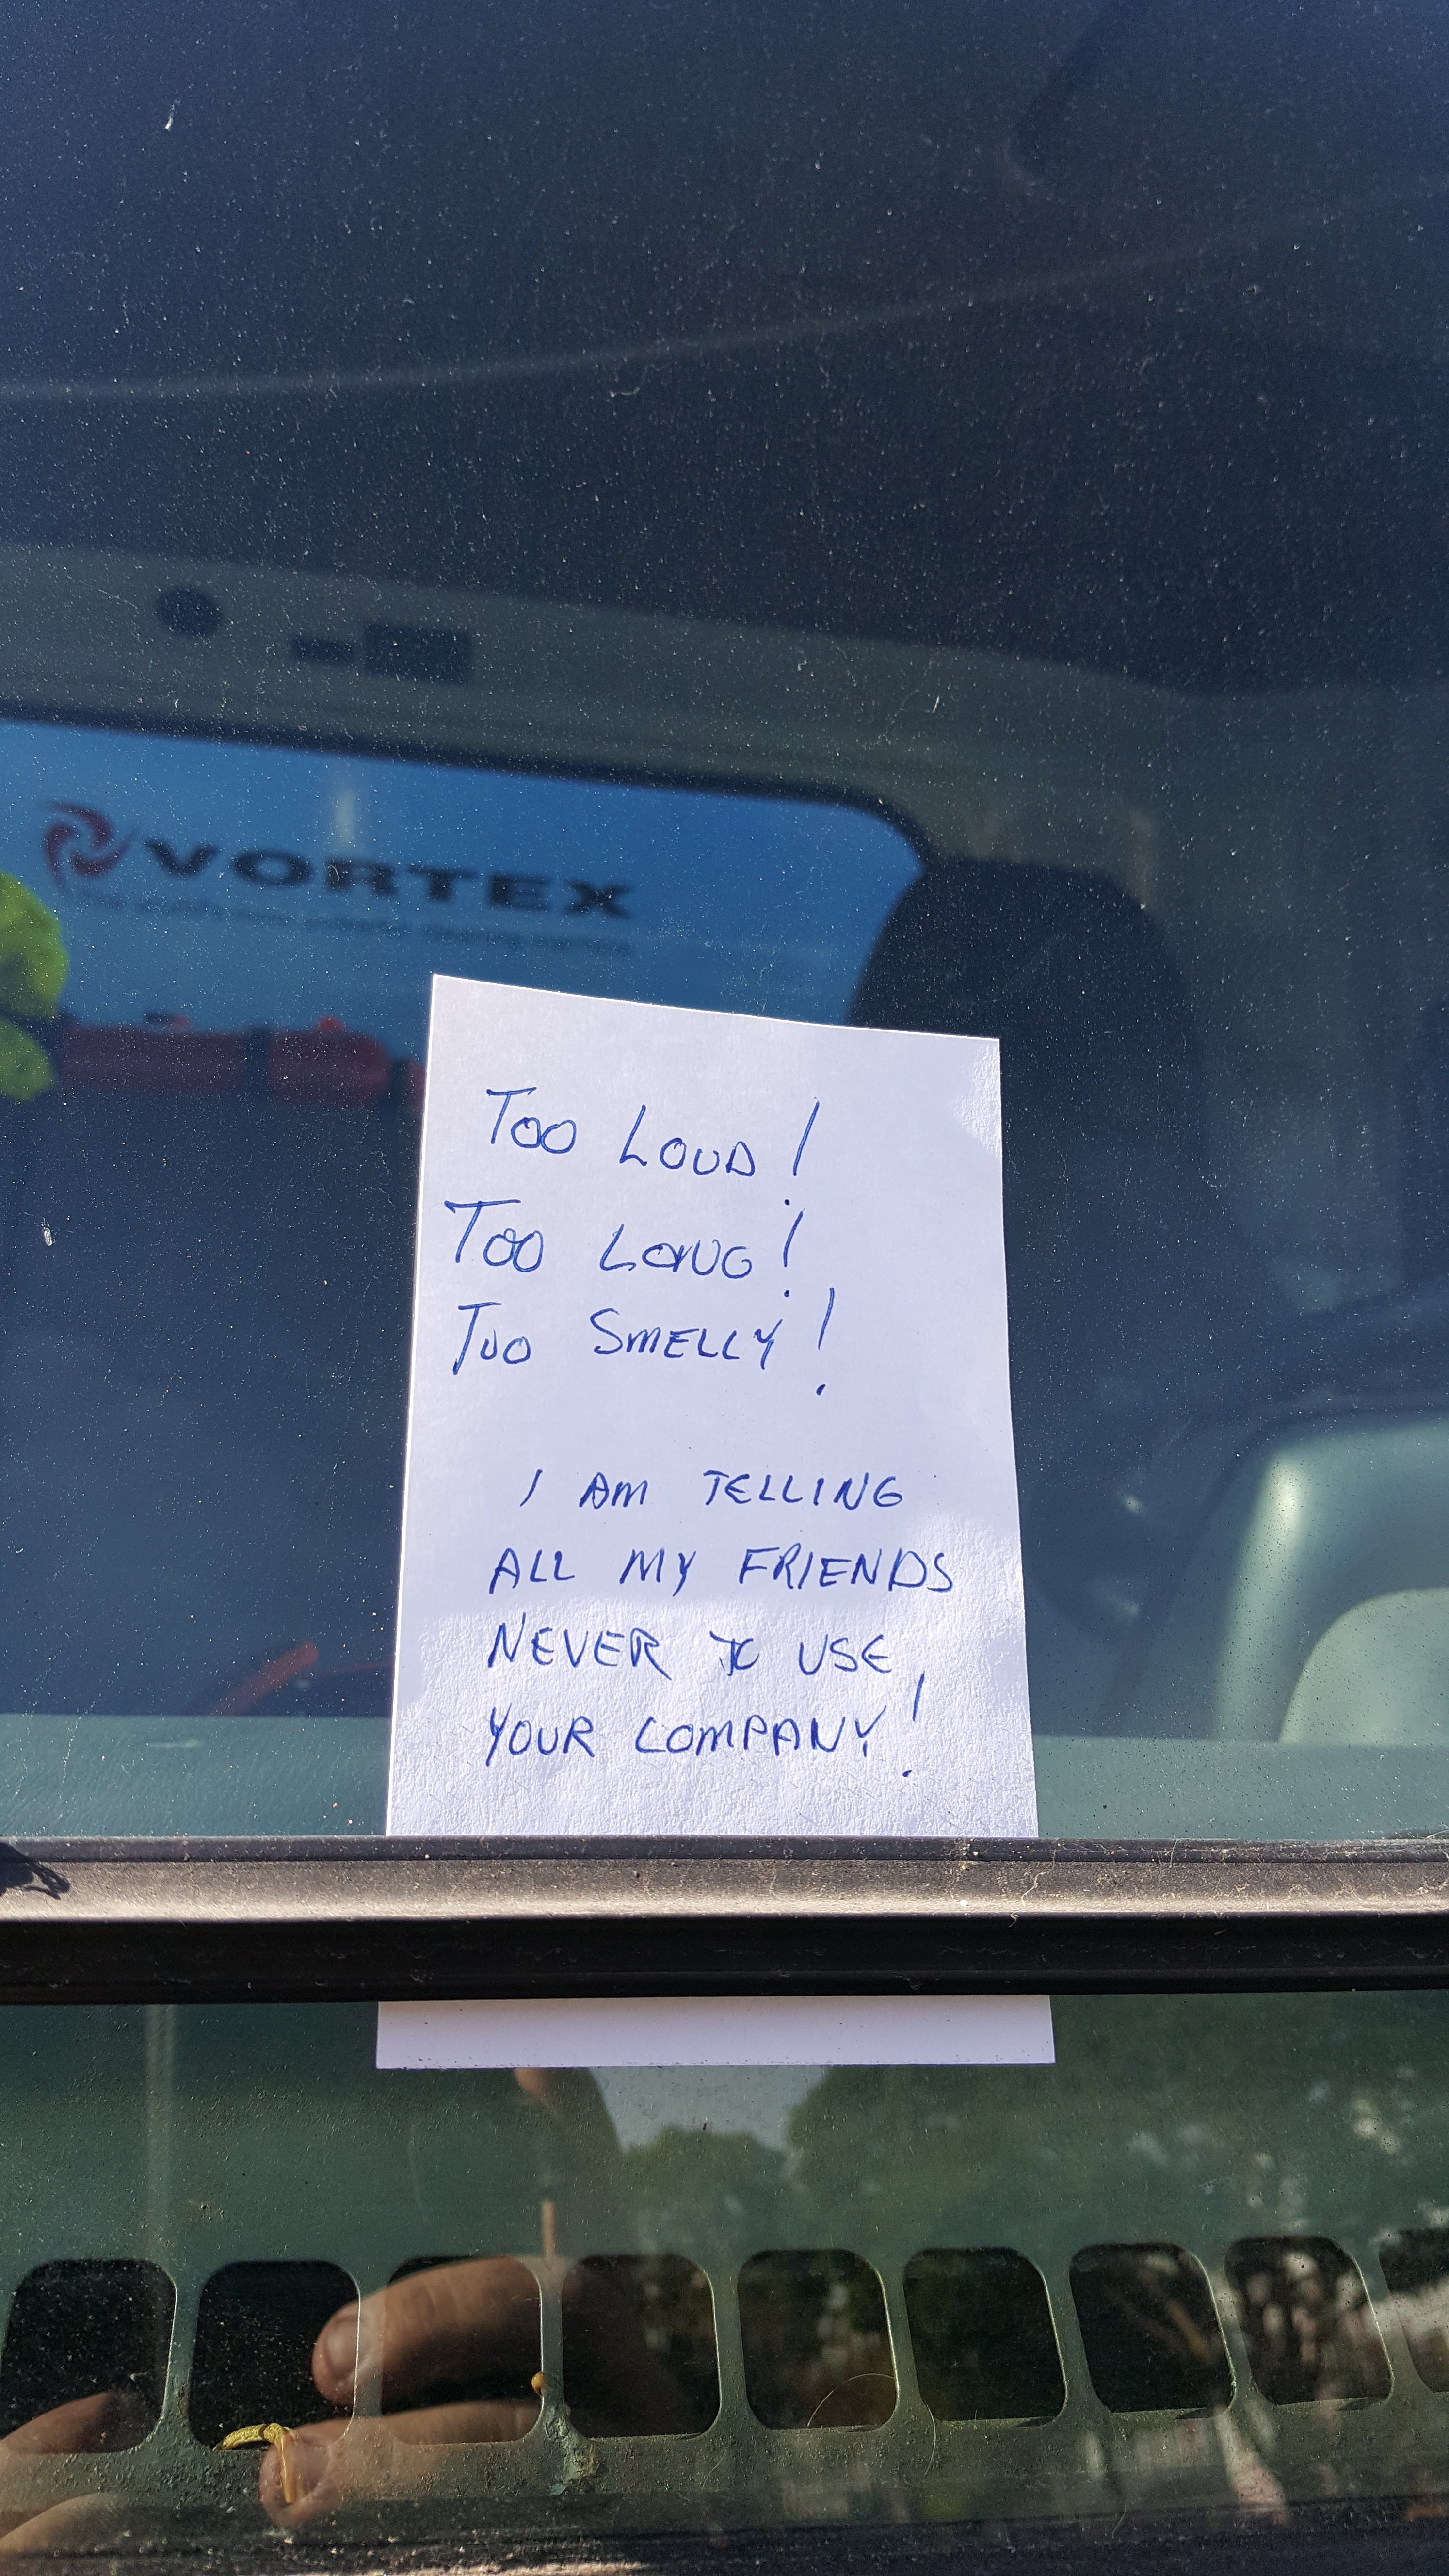 VORTEX
TOO LOUD!
TOO LONG!
TOO SMELLY!
I AM TELLING
ALL MY FRIENDS
NEVER TO USE
YOUR COMPANY!